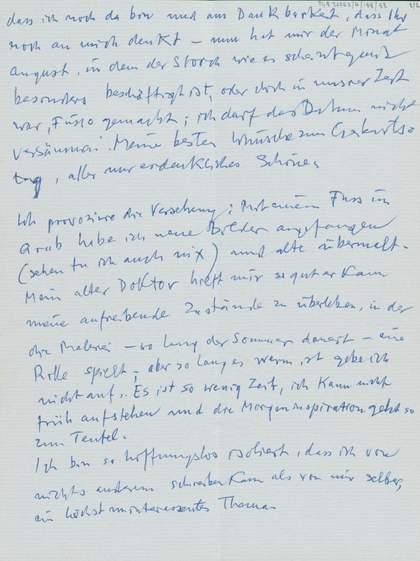 dass ich noch da bin und aus Dankbarkeit, dass Ihr
noch an mich denkt – nun hat mir der Monat
august, in dem der Storch wie es scheint ganz
besonders beschäftigt ist, oder doch in unsrer Zeit
war, Füsse gemacht; ich darf das Datum nicht
versäumen. Meine besten Wünsche zum Geburtstag
, alles nur erdenkliche Schöne
Ich provoziere die Vorsehung; Mit einem Fuss im
Grab habe ich neue Bilder angefangen
(sehen tu ich auch nix) und alte übermalt.
Mein alter Doktor hilft mir so gut er kann
meine aufreibende Zustände zu überleben, in der
die Malerei – so lang der Sommer dauert – eine
Rolle spielt, aber so lang es warm ist gebe ich
nicht auf. Es ist so wenig Zeit, ich kann nicht
früh aufstehen und die Morgeninspiration geht so
zum Teufel.
Ich bin so hoffnungslos isoliert, dass ich von
nichts anderem schreiben kann als von mir selber,
ein höchst uninteressantes Thema